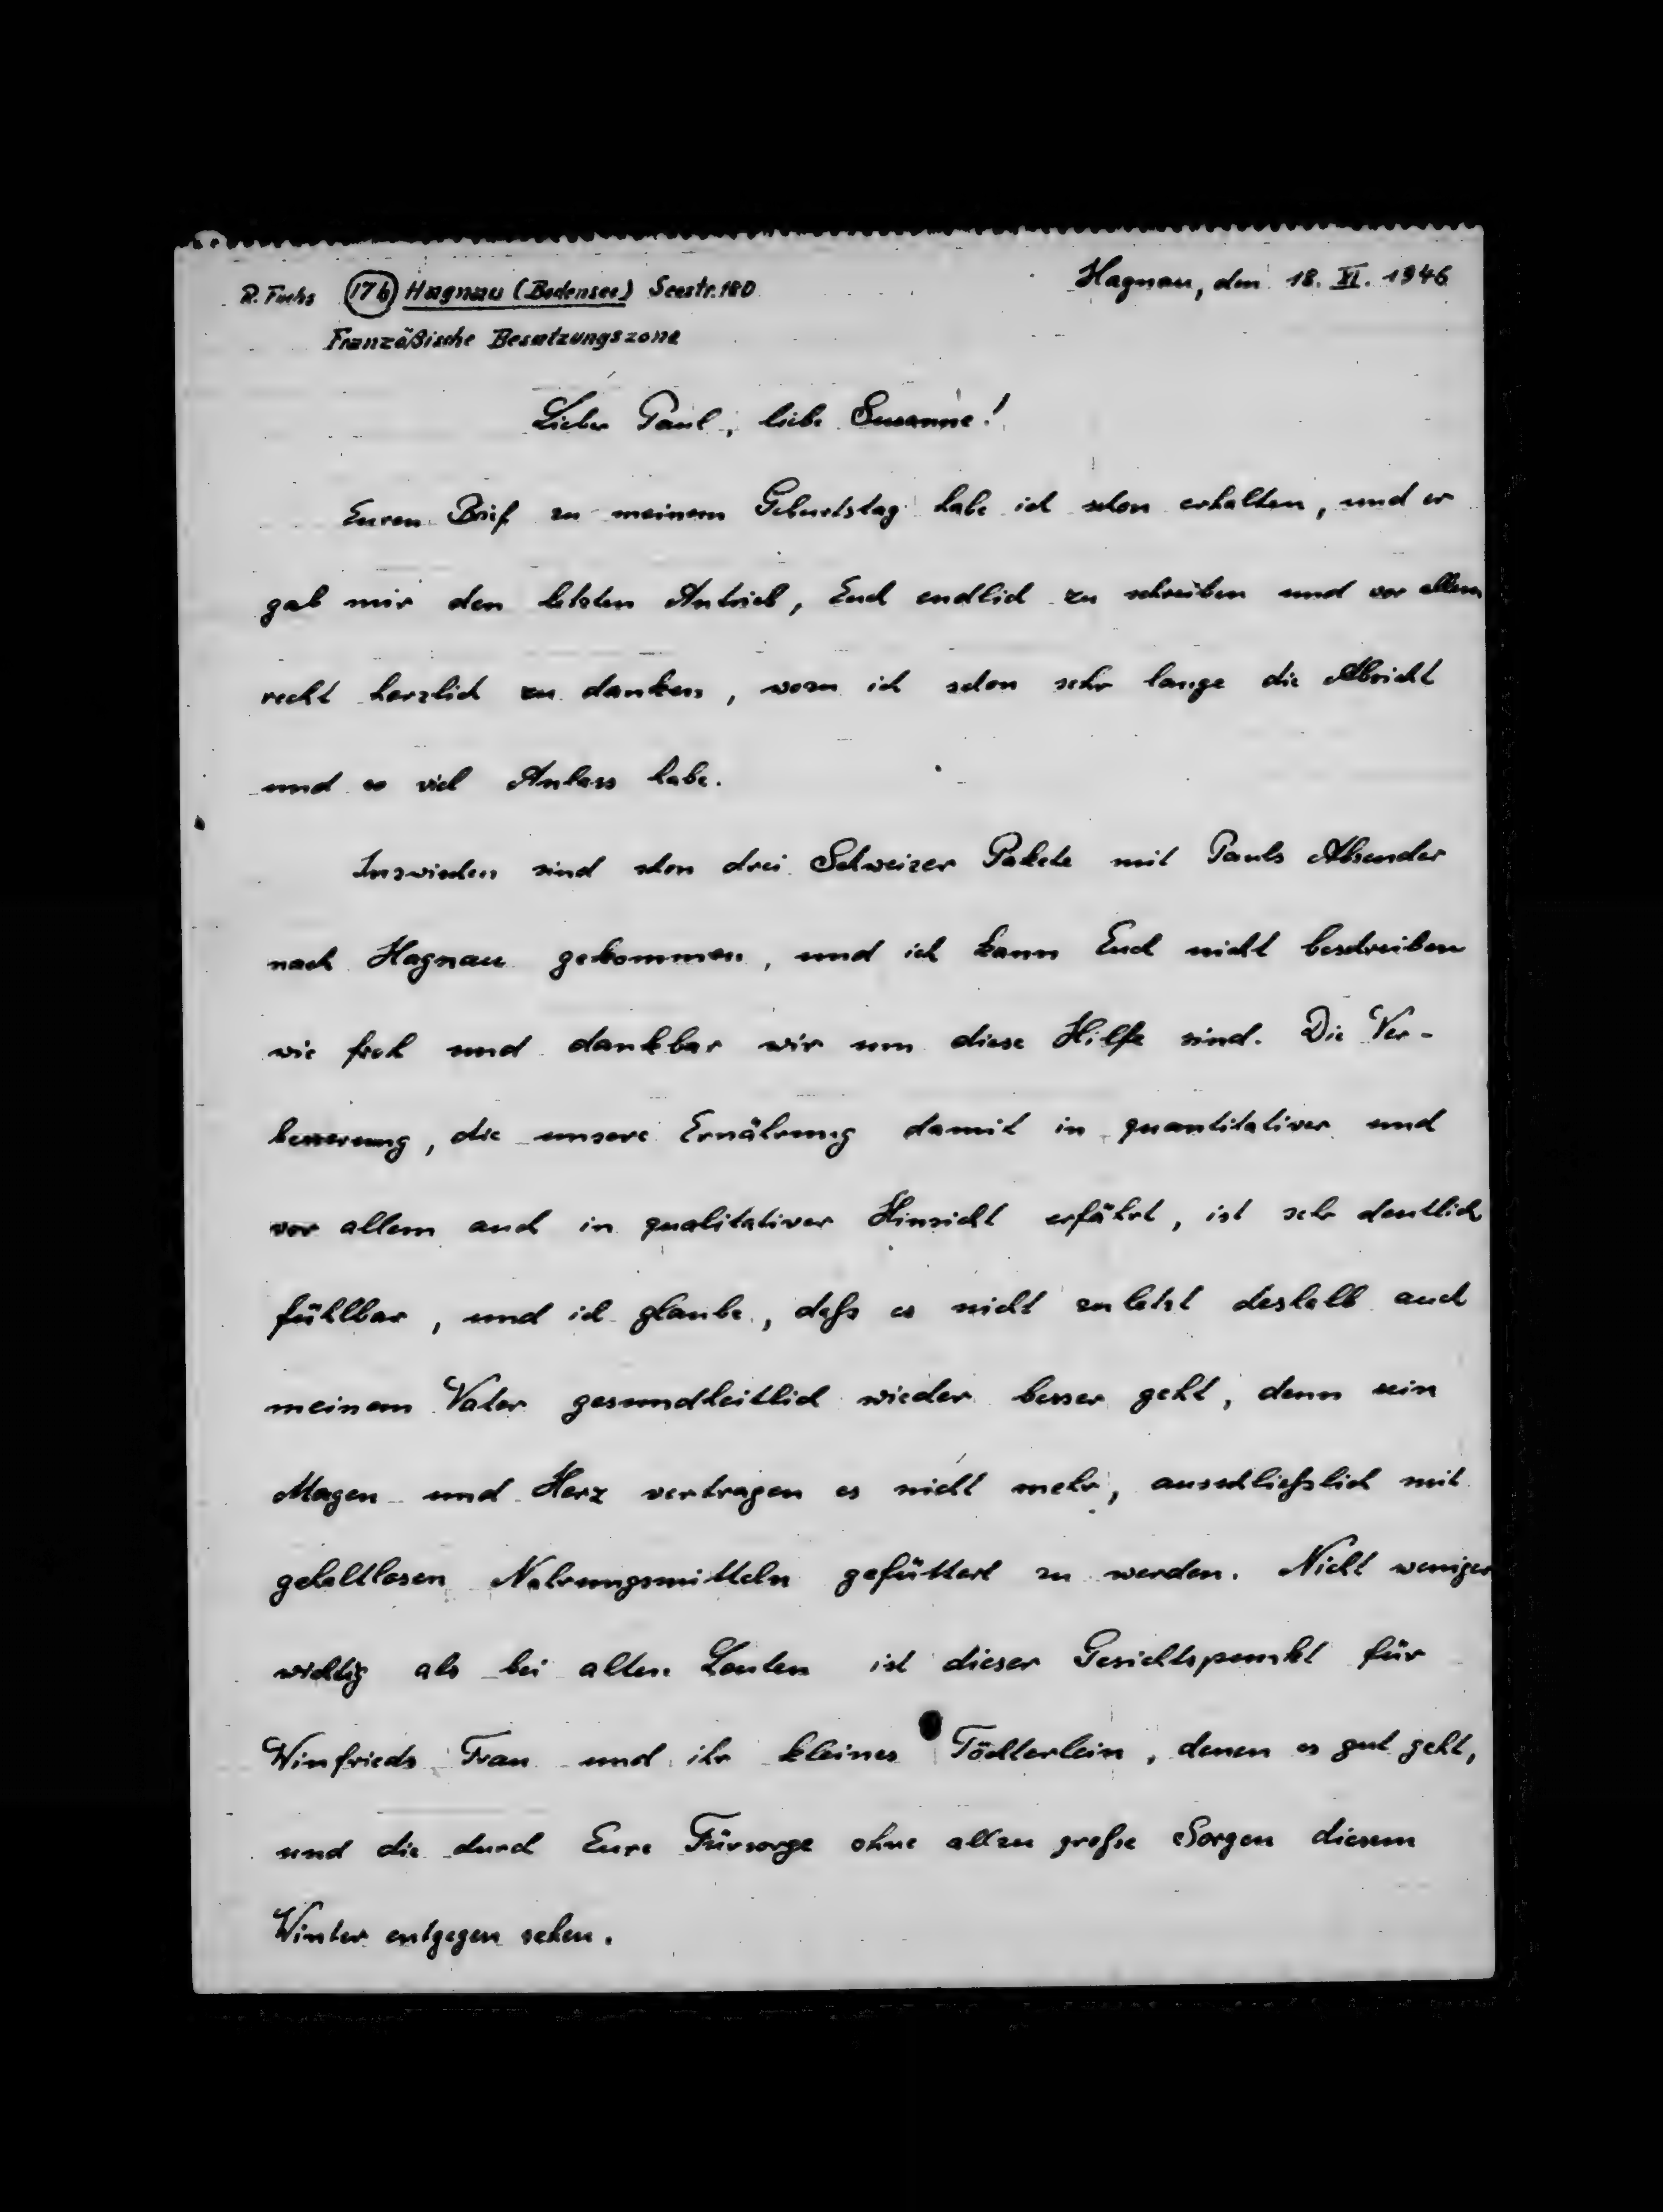 R. Fuchs (17b) Hagnau (Bodensee) Seestr. 180
Hagnau, den 18. XI. 1946
Französische Besatzungszone
Lieber Paul, liebe Susanne!
Euren Brief zu meinem Geburtstag habe ich schon erhalten, und er
gab mir den letzten Antrieb, Euch endlich zu schreiben und vor allem
recht herzlich zu danken, wozu ich schon sehr lange die Absicht
und so viel Anlass habe.
Inzwischen sind schon drei Schweizer Pakete mit Pauls Absender
nach Hagnau gekommen, und ich kann Euch nicht beschreiben
wie froh und dankbar wir um diese Hilfe sind. Die Ver-
besserung, die unsere Ernährung damit in quantitativer und
vor allem auch in qualitativer Hinsicht erfährt, ist sehr deutlich
fühlbar, und ich glaube, daß es nicht zuletzt deshalb auch
meinem Vater gesundheitlich wieder besser geht, denn sein
Magen und Herz vertragen es nicht mehr, ausschließlich mit
gehaltlosen Nahrungsmitteln gefüttert zu werden. Nicht weniger
wichtig als bei alten Leuten ist dieser Gesichtspunkt für
Winfrieds Frau und ihr kleines Töchterlein, denen es gut geht,
und die durch Eure Fürsorge ohne allzu große Sorgen diesem
Winter entgegen sehen.